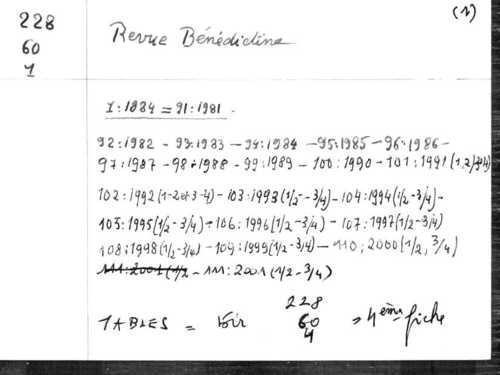 (1)
228
60
1
Revue Bénédictine
1:1884 = 91:1981
92:1982 - 93:1983 - 94:1984 - 95:1985 - 96:1986 -
97:1987 - 98:1988 - 99:1989 - 100:1990 - 101:1991 (1.2/3-4)
102:1992 (1-2 et 3-4) - 103:1993 (1/2 - 3/4) - 104:1994 (1/2 - 3/4) -
105:1995 (1/2 - 3/4) - 106:1996 (1/2 - 3/4) - 107:1997 (1/2 - 3/4)
108:1998 (1/2 - 3/4) - 109:1999 (1/2 - 3/4) - 110:2000 (1/2, 3/4)
111:2001 (1/2 - 111:2001 (1/2 - 3/4)
TABLES = voir 228 60 4 = 4ème fiche